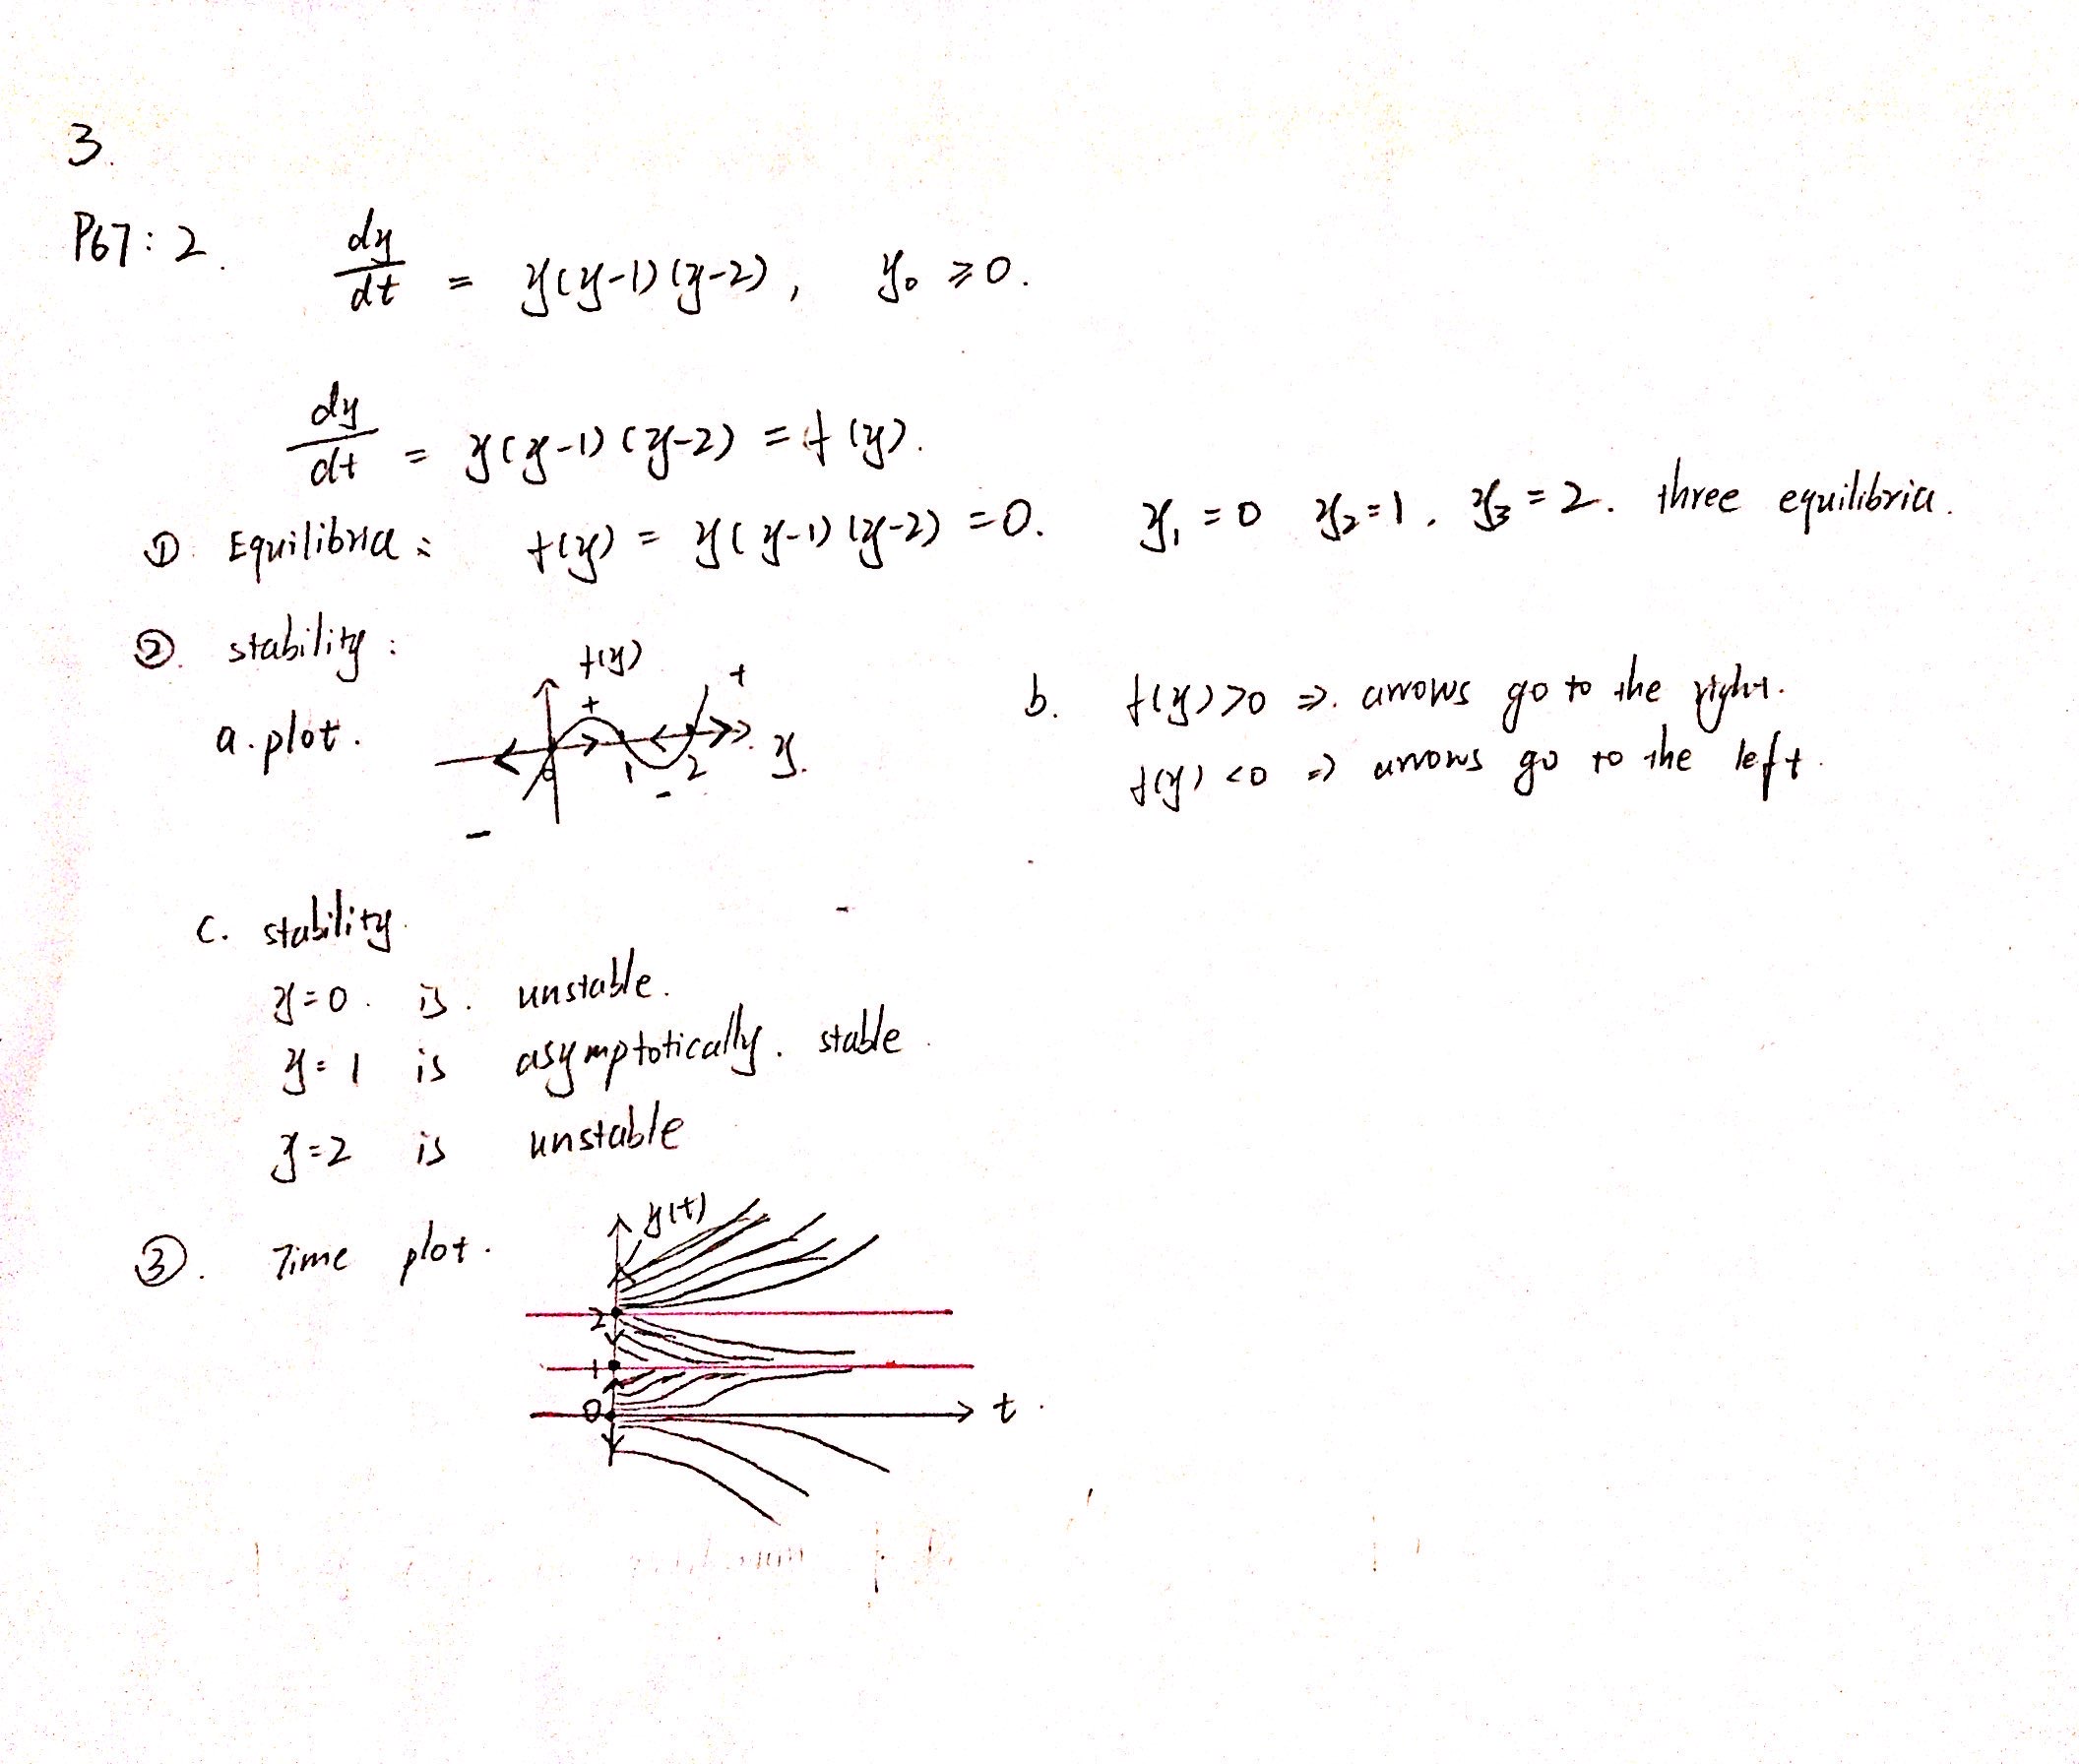 3.
P67: 2. dy/dt = y(y-1)(y-2), y₀ ≥0.
dy/dt = y(y-1)(y-2) = f(y).
①. Equilibria: f(y) = y(y-1)(y-2) =0. y₁=0 y₂=1, y₃=2. three equilibria.
②. stability:
a. plot.
f(y)
+
+
0 1 2 y.
-
-
b. f(y)>0 ⇒. arrows go to the right.
f(y)<0 ⇒ arrows go to the left.
c. stability.
y=0. is. unstable.
y=1 is asymptotically. stable.
y=2 is unstable
③. Time plot.
y(t)
2
1
0
t.